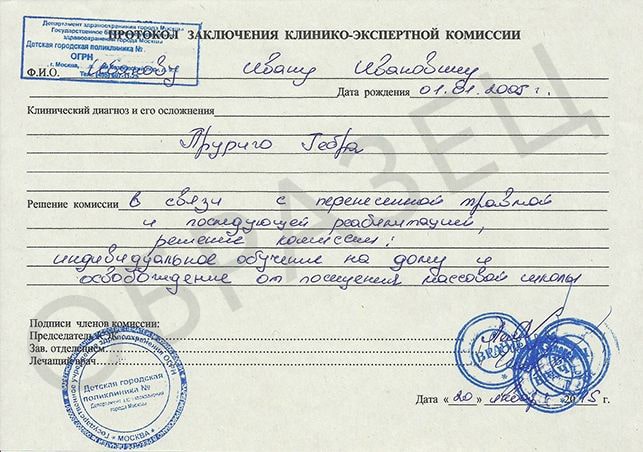 ПРОТОКОЛ ЗАКЛЮЧЕНИЯ КЛИНИКО-ЭКСПЕРТНОЙ КОМИССИИ
Департамент здравоохранения города Москвы
Детская городская поликлиника №
ОГРН
г. Москва,
Ф.И.О. Иванову Ивану Ивановичу
Дата рождения 01.01.2005 г.
Клинический диагноз и его осложнения
Пруриго Гебра
Решение комиссии в связи с перенесенной травмой
и последующей реабилитацией,
решение комиссии:
индивидуальное обучение на дому и
освобождение от посещения массовой школы
ОБРАЗЕЦ
Подписи членов комиссии:
Председатель КЭК
Зав. отделением
Лечащий врач
Детская городская
поликлиника №
города Москвы
* МОСКВА *
ВРАЧ
Дата «20» 2015 г.